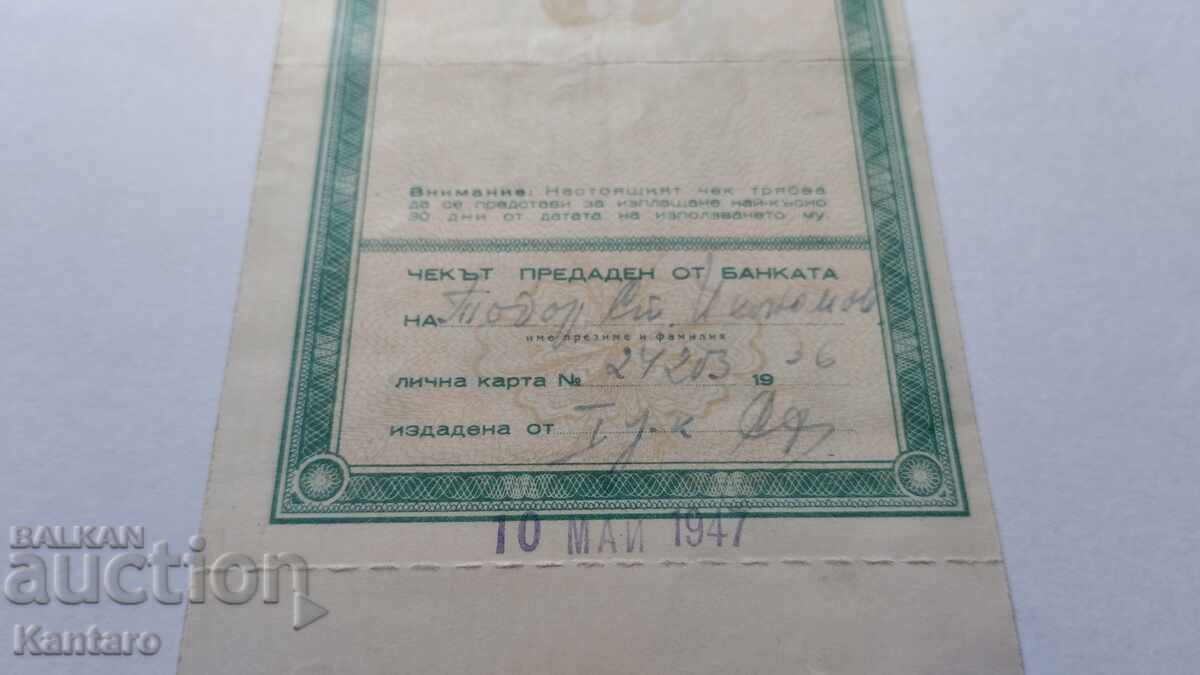 Внимание: Настоящият чек трябва
да се представи за изплащане най-късно
30 дни от датата на използването му.
ЧЕКЪТ ПРЕДАДЕН ОТ БАНКАТА
НА Тодор Ст. Икономов
име презиме и фамилия
ЛИЧНА КАРТА № 24203 19 36
ИЗДАДЕНА ОТ I у-к
10 МАЙ 1947
BALKAN
auction
Kantaro